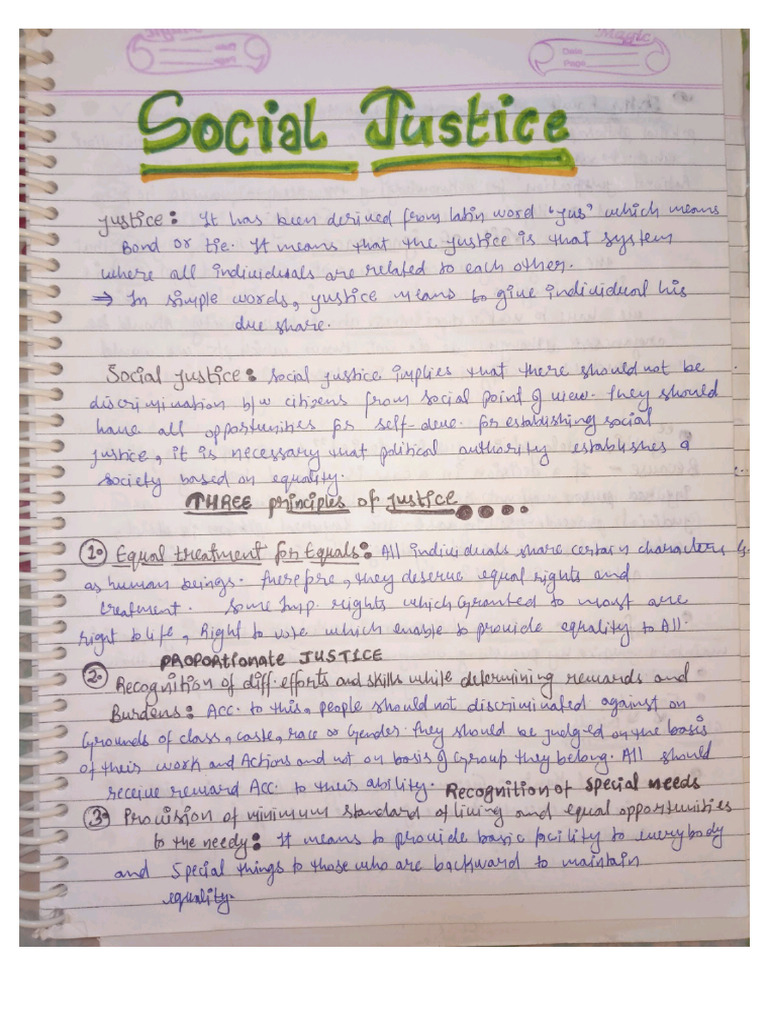 Magic
Date
Page
Social Justice
Justice: It has been derived from latin word "jus" which means
Bond or tie. It means that the justice is that system
where all individuals are related to each other.
⇒ In simple words, justice means to give individual his
due share.
Social justice: social justice implies that there should not be
discrimination b/w citizens from social point of view. They should
have all opportunities for self-deve. for establishing social
justice, it is necessary that political authority establishes a
society based on equality.
THREE principles of justice
1. Equal treatment for Equals: All individuals share certain characters
as human beings. Therefore, they deserve equal rights and
treatment. Some Imp. rights which Granted to most are
right to life, Right to vote which enable to provide equality to All.
PROPORtionate JUSTICE
2. Recognition of diff. efforts and skills while determining rewards and
Burdens: Acc. to this, people should not discriminated against on
Grounds of class, caste, race or Gender. they should be judged on the basis
of their work and Actions and not on basis of Group they belong. All should
receive reward Acc. to their ability. Recognition of special needs
3. Provision of minimum standard of living and equal opportunities
to the needy: It means to provide basic facility to everybody
and special things to those who are backward to maintain
equality.